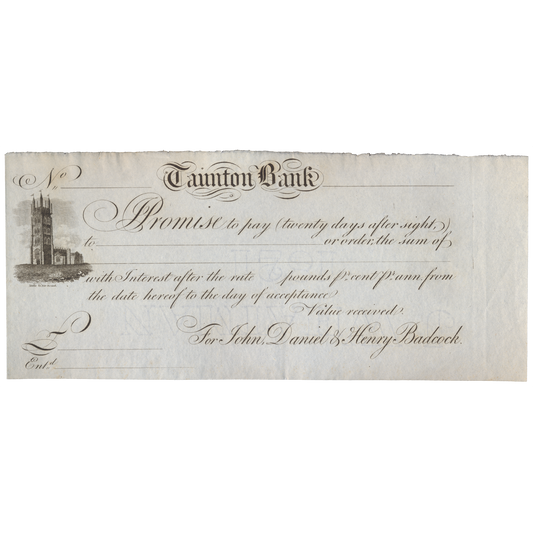 No
Taunton Bank
I Promise to pay (twenty days after sight,)
to or order, the sum of
with Interest after the rate pounds pr. cent pr. ann. from
the date hereof to the day of acceptance
Value received.
£ For John, Daniel & Henry Badcock.
Ent.d